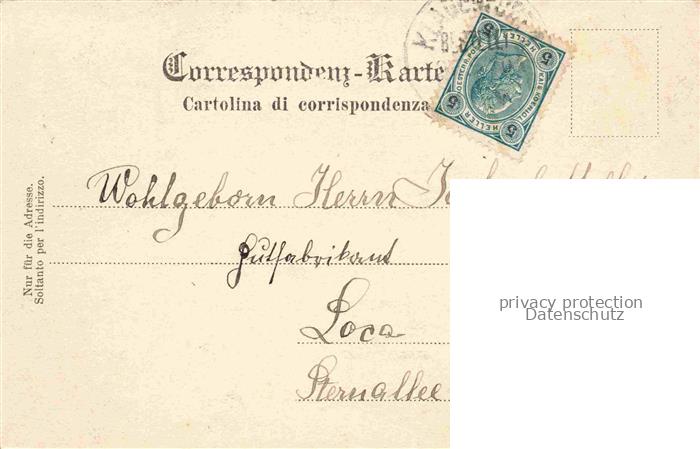 Correspondenz-Karte
Cartolina di corrispondenza
5 5 5 5
HELLER HELLER
Nur für die Adresse.
Soltanto per l'indirizzo.
Wohlgeborn Herrn
Hutfabrikant
Loco
Sternallee
privacy protection
Datenschutz